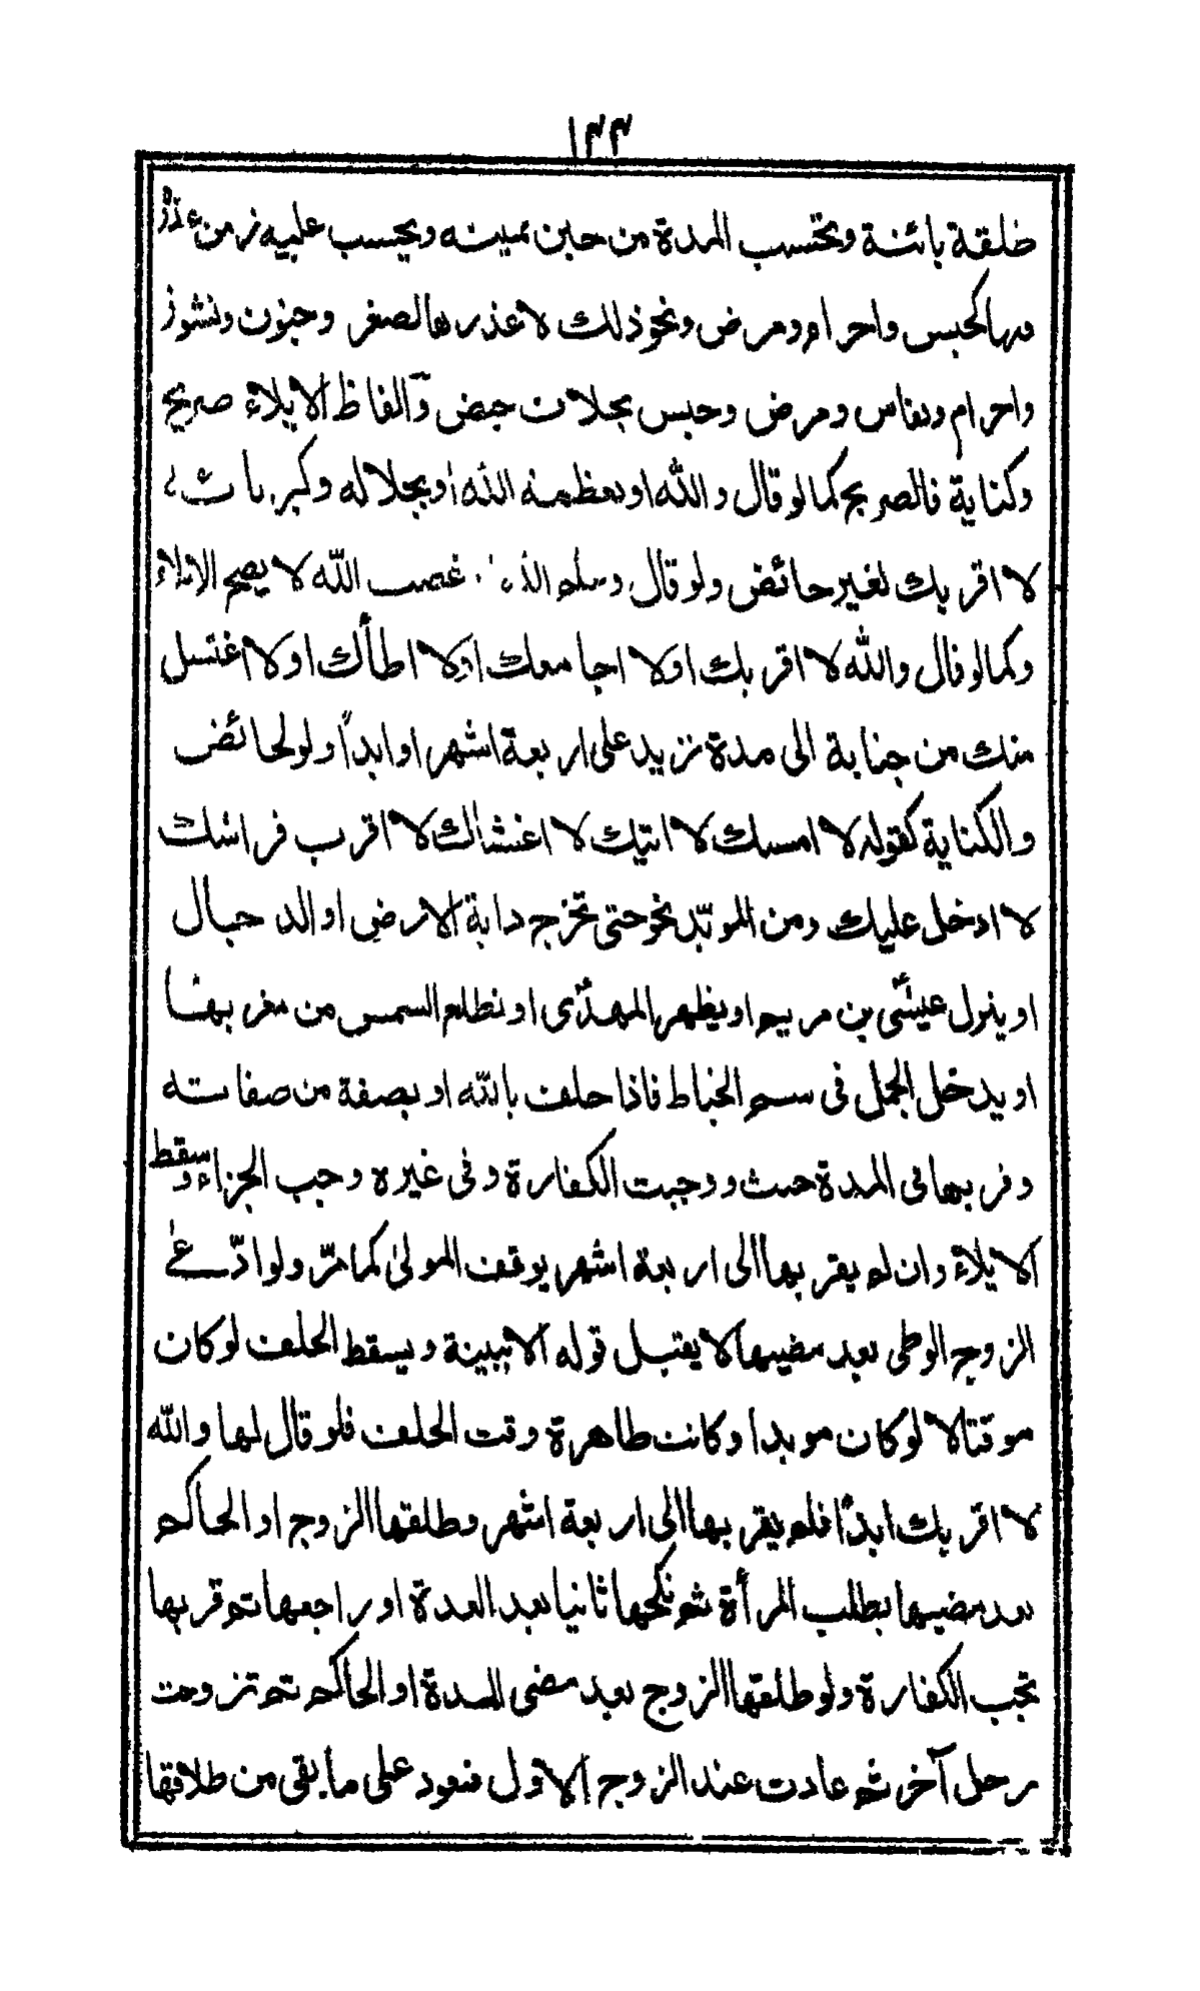 ١٣٣
طلقة بائنة وتحتسب المدة من حين يمينه ويحسب عليه زمن عذر
مها كحبس واحرام ومرض ونحو ذلك لا عذرها لصغر وجنون ونشوز
واحرام ونفاس ومرض وحبس بخلاف حيض وآلفاظ الايلاء صريح
وكناية فالصريح كما لو قال والله او بعظمة الله او بجلاله وكبريائه
لا اقربك لغير حائض ولو قال وغضب الله لا يصح الايلاء
وكما لو قال والله لا اقربك او لا اجامعك او لا اطأك او لا اغتسل
منك من جنابة الى مدة تزيد على اربعة اشهر او ابدًا ولو لحائض
والكناية كقوله لا امسك لا اتيك لا اغشاك لا اقرب فراشك
لا ادخل عليك ومن المؤبّد نحو حتى تخرج دابة الارض او الدجال
او ينزل عيسى بن مريم او يظهر المهدى او تطلع الشمس من مغربها
او يدخل الجمل فى سم الخياط فاذا حلف بالله او بصفة من صفاته
وقربها فى المدة حنث ووجبت الكفارة وفى غيره وجب الجزاء وسقط
الايلاء وان لم يقربها الى اربعة اشهر يوقف المولىٰ كما مرّ ولو ادّعىٰ
الزوج الوطى بعد مضيها لا يقبل قوله الا ببينة ويسقط الحلف لو كان
موقتا لا لو كان موبدا وكانت طاهرة وقت الحلف فلو قال لها والله
لا اقربك ابدًا فلم يقربها الى اربعة اشهر وطلقها الزوج او الحاكم
بعد مضيها بطلب المرأة ثم نكحها ثانيا بعد العدة او راجعها ثم قربها
تجب الكفارة ولو طلقها الزوج بعد مضى المدة او الحاكم ثم تزوجت
برجل آخر ثم عادت عند الزوج الاول فتعود على ما بقى من طلاقها